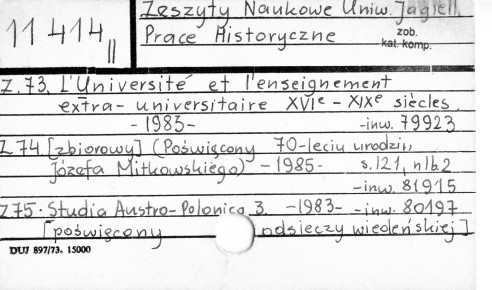 Zeszyty Naukowe Uniw. Jagiell.
11414 II
Prace Historyczne
zob.
kat. komp.
Z.73. L'Université et l'enseignement
extra-universitaire XVIe - XIXe siècles.
-1983- -inw. 79923
Z.74 [zbiorowy] (Poświęcony 70-leciu urodzin
Józefa Mitkowskiego) -1985- s.121, nlb.2
-inw. 81915
Z.75. Studia Austro-Polonica 3. -1983- -inw. 80197
[poświęcony odsieczy wiedeńskiej]
DUJ 897/73. 15000